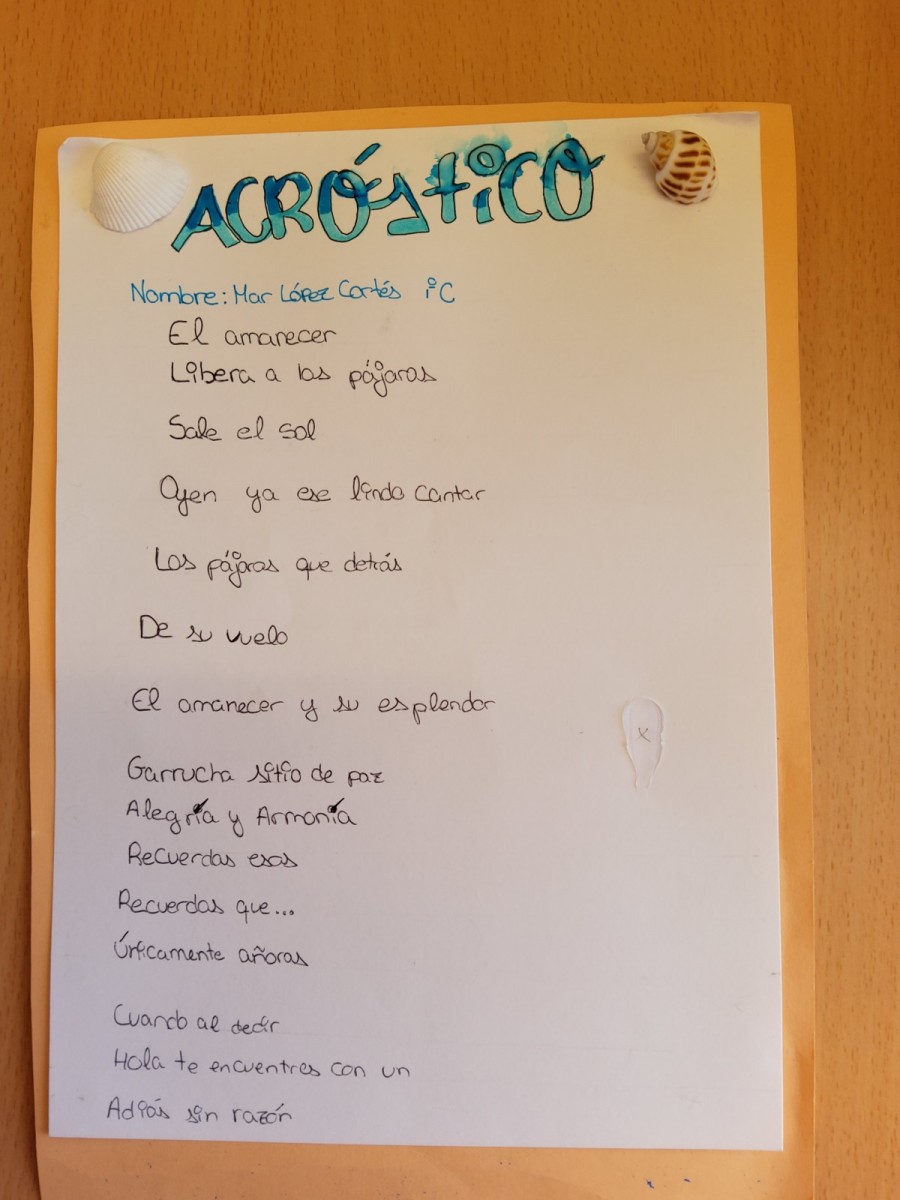 ACRÓSTICO
Nombre: Mar López Cortés 1ºC
El amanecer
Libera a los pájaros
Sale el sol
Oyen ya ese lindo cantar
Los pájaros que detrás
De su vuelo
El amanecer y su esplendor
Garrucha sitio de paz
Alegría y Armonía
Recuerdas esos
Recuerdas que...
Únicamente añoras
Cuando al decir
Hola te encuentres con un
Adiós sin razón
x